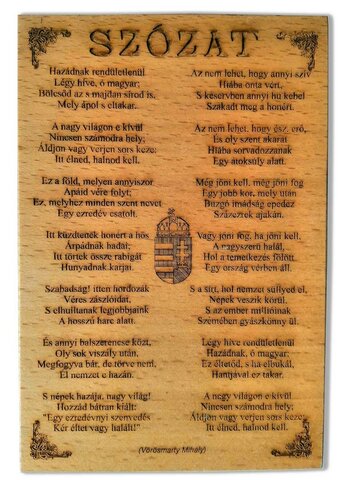 SZÓZAT
Hazádnak rendületlenűl
Légy híve, ó magyar;
Bölcsőd az s majdan sírod is,
Mely ápol s eltakar.
A nagy világon e kívűl
Nincsen számodra hely;
Áldjon vagy verjen sors keze:
Itt élned, halnod kell.
Ez a föld, melyen annyiszor
Apáid vére folyt;
Ez, melyhez minden szent nevet
Egy ezredév csatolt.
Itt küzdtenek honért a hős
Árpádnak hadai;
Itt törtek össze rabigát
Hunyadnak karjai.
Szabadság! itten hordozák
Véres zászlóidat,
S elhulltanak legjobbjaink
A hosszú harc alatt.
És annyi balszerencse közt,
Oly sok viszály után,
Megfogyva bár, de törve nem,
Él nemzet e hazán.
S népek hazája, nagy világ!
Hozzád bátran kiált:
"Egy ezredévnyi szenvedés
Kér éltet vagy halált!"
Az nem lehet, hogy annyi szív
Hiába onta vért,
S keservben annyi hű kebel
Szakadt meg a honért.
Az nem lehet, hogy ész, erő,
És oly szent akarat
Hiába sorvadozzanak
Egy átoksúly alatt.
Még jőni kell, még jőni fog
Egy jobb kor, mely után
Buzgó imádság epedez
Százezrek ajakán.
Vagy jőni fog, ha jőni kell,
A nagyszerű halál,
Hol a temetkezés fölött
Egy ország vérben áll.
S a sírt, hol nemzet sűllyed el,
Népek veszik körűl,
S az ember millióinak
Szemében gyászköny űl.
Légy híve rendületlenűl
Hazádnak, ó magyar;
Ez éltetőd, s ha elbukál,
Hantjával ez takar.
A nagy világon e kívűl
Nincsen számodra hely;
Áldjon vagy verjen sors keze:
Itt élned, halnod kell.
(Vörösmarty Mihály)